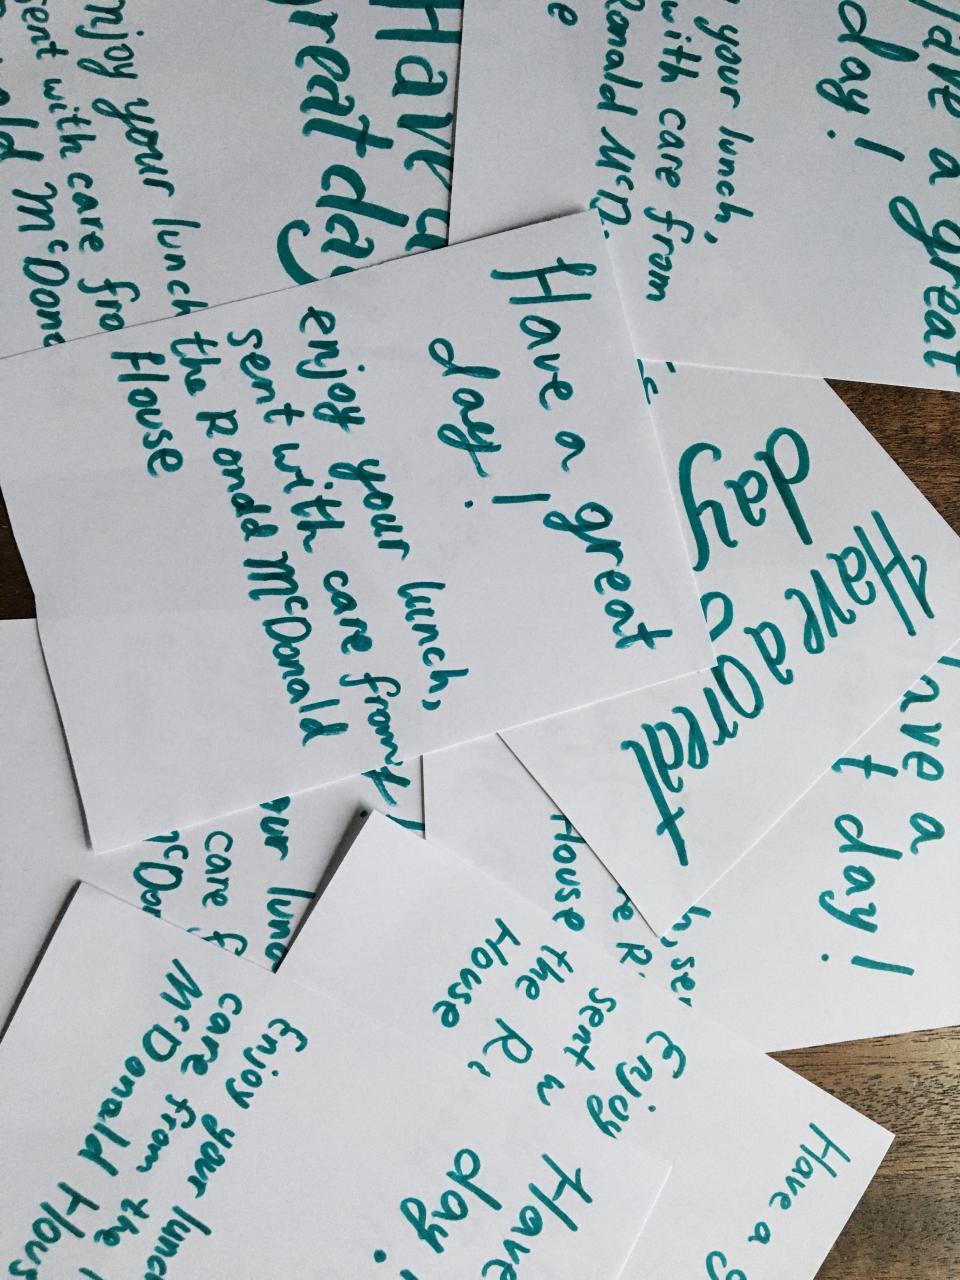 Have a great
day!
enjoy your lunch,
sent with care from
the Ronald McDonald
House
Have a
great day
enjoy your lunch
sent with care
McDona
Have a great
day!
your lunch,
with care from
Ronald McD.
Have a Great
day
have a
day!
House
your lunc
care f
Enjoy
sent
the R
House
Have
day!
Enjoy your lunch
care from the
McDonald Hous
Have a g